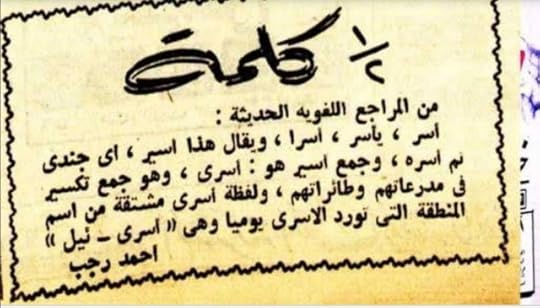 ١/٢ كلمة
من المراجع اللغويه الحديثة :
أسر ، يأسر ، أسرا ، ويقال هذا أسير ، أى جندى
تم أسره ، وجمع أسير هو : أسرى ، وهو جمع تكسير
فى مدرعاتهم وطائراتهم ، ولفظة أسرى مشتقة من اسم
المنطقة التى تورد الاسرى يوميا وهى « أسرى - ئيل »
احمد رجب